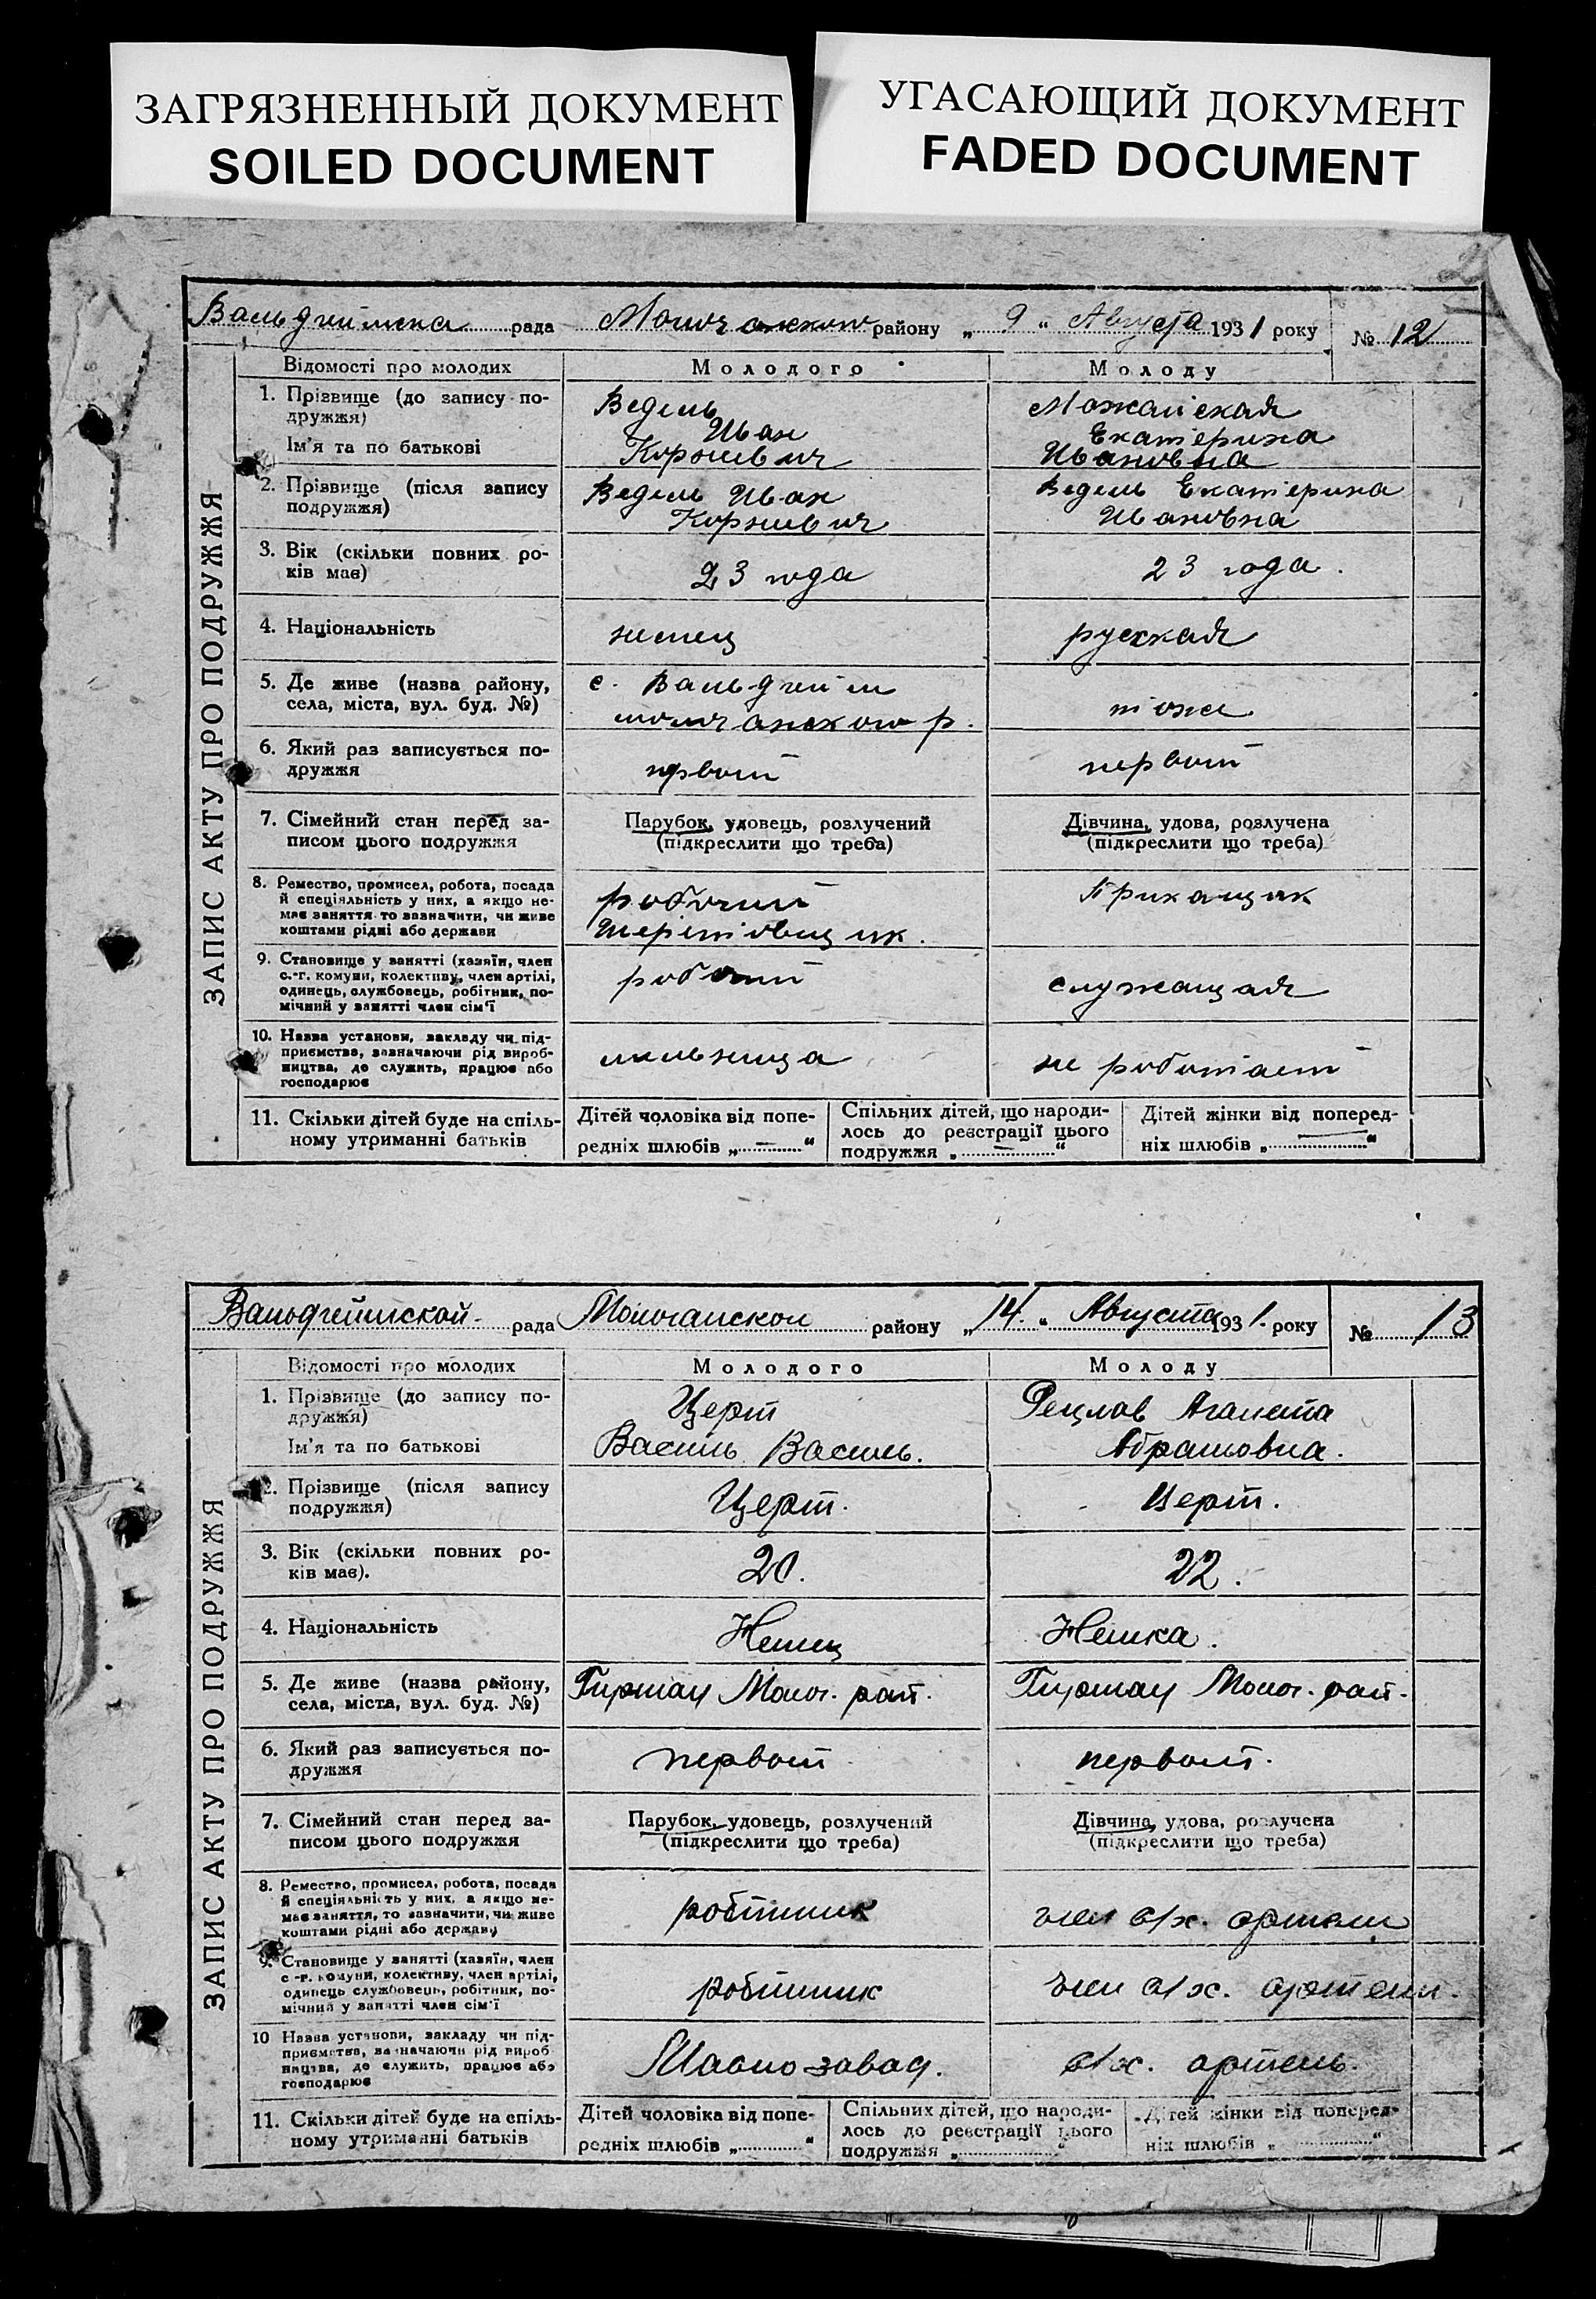 ЗАГРЯЗНЕННЫЙ ДОКУМЕНТ
SOILED DOCUMENT
УГАСАЮЩИЙ ДОКУМЕНТ
FADED DOCUMENT
ЗАПИС АКТУ ПРО ПОДРУЖЖЯ
рада району „ 9 “ Августа 1931 року № 12
Відомості про молодих Молодого Молоду
1. Прізвище (до запису по-
дружжя)
Ім'я та по батькові
Ведель
Иван
Корниевич
Можайская
Екатерина
Ивановна
2. Прізвище (після запису
подружжя)
Ведель Иван
Корниевич
Ведель Екатерина
Ивановна
3. Вік (скільки повних ро-
ків має)
23 года
23 года.
4. Національність
немец
русская
5. Де живе (назва району,
села, міста, вул. буд. №)
с. Вальдгейм
молочанского р.
тоже
6. Який раз записується по-
дружжя
первый
первый
7. Сімейний стан перед за-
писом цього подружжя
Парубок, удовець, розлучений
(підкреслити що треба)
Дівчина, удова, розлучена
(підкреслити що треба)
8. Ремество, промисел, робота, посада
й спеціяльність у них, а якщо не-
має заняття то зазначити, чи живе
коштами рідні або держави
рабочий
Приканщик
9. Становище у занятті (хазяїн, член
с.-г. комуни, колективу, член артілі,
одинець, службовець, робітник, по-
мічний у занятті член сім'ї
рабочий
служащая
10. Назва установи, закладу чи під-
приємства, зазначаючи рід вироб-
ництва, де служить, працює або
господарює
мельница
не работает
11. Скільки дітей буде на спіль-
ному утриманні батьків
Дітей чоловіка від попе-
редніх шлюбів „ — “
Спільних дітей, що народи-
лось до реєстрації цього
подружжя „ — “
Дітей жінки від поперед-
ніх шлюбів „ — “
ЗАПИС АКТУ ПРО ПОДРУЖЖЯ
Вальдгеймской рада району „ 14. “ Августа 1931. року № 13
Відомості про молодих Молодого Молоду
1. Прізвище (до запису по-
дружжя)
Ім'я та по батькові
Церт
Василь Василь.
Рецлав Аганета
Абрамовна.
2. Прізвище (після запису
подружжя)
Церт.
Церт.
3. Вік (скільки повних ро-
ків має).
20.
22.
4. Національність
Немец
Немка.
5. Де живе (назва району,
села, міста, вул. буд. №)
Гиршау Молоч. рай.
Гиршау Молоч. рай.
6. Який раз записується по-
дружжя
первый
первый.
7. Сімейний стан перед за-
писом цього подружжя
Парубок, удовець, розлучений
(підкреслити що треба)
Дівчина, удова, розлучена
(підкреслити що треба)
8. Ремество, промисел, робота, посада
й спеціяльність у них, а якщо не-
має заняття, то зазначити, чи живе
коштами рідні або держави
робітник
член с/х. артели
9. Становище у занятті (хазяїн, член
с-г. комуни, колективу, член артілі,
одинець службовець, робітник, по-
мічний у занятті член сім'ї
робітник
член с/х. артели.
10 Назва установи, закладу чи під-
приємства, зазначаючи рід вироб
ництва, де служить, працює або
господарює
завод.
с/х. артель.
11. Скільки дітей буде на спіль-
ному утриманні батьків
Дітей чоловіка від попе-
редніх шлюбів „ “
Спільних дітей, що народи-
лось до реєстрації цього
подружжя „ “
Дітей жінки від поперед-
ніх шлюбів „ “